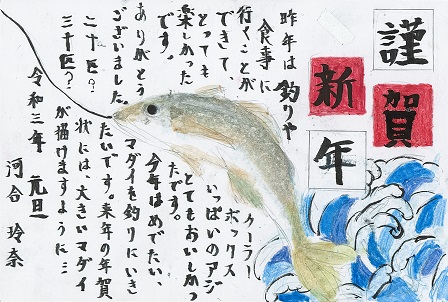 謹賀
新年
昨年は釣りや
食事に
行くことが
できて、
とっても
楽しかった
です。
ありがとう
ございました。
クーラー
ボックス
いっぱいのアジ
とてもおいしかっ
たです。
今年はめでたい、
マダイを釣りにいき
たいです。来年の年賀
状には、大きいマダイ
が描けますように…
二十匹？
三十匹？
令和三年 元旦
河合 玲奈